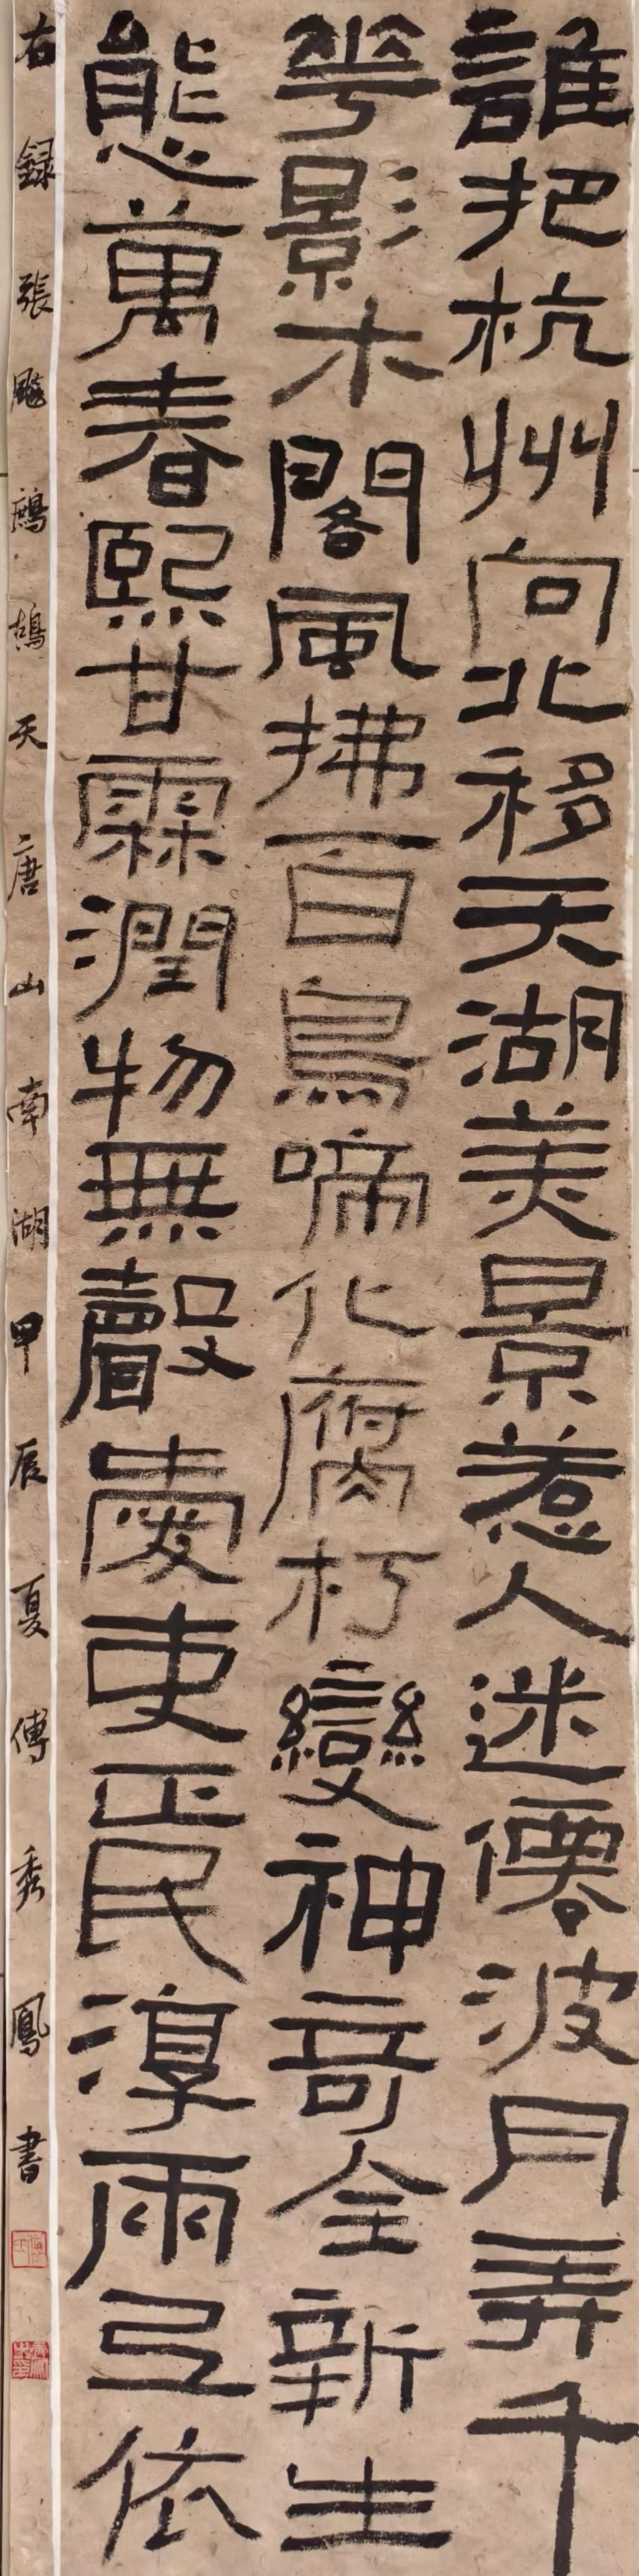 誰把杭州向北移天湖美景惹人迷僊波月弄千
華影木閣風拂百鳥啼化腐朽變神奇全新生
態萬春熙甘霖潤物無聲處吏正民淳兩互依
右錄張飈鷓鴣天唐山南湖甲辰夏傅秀鳳書